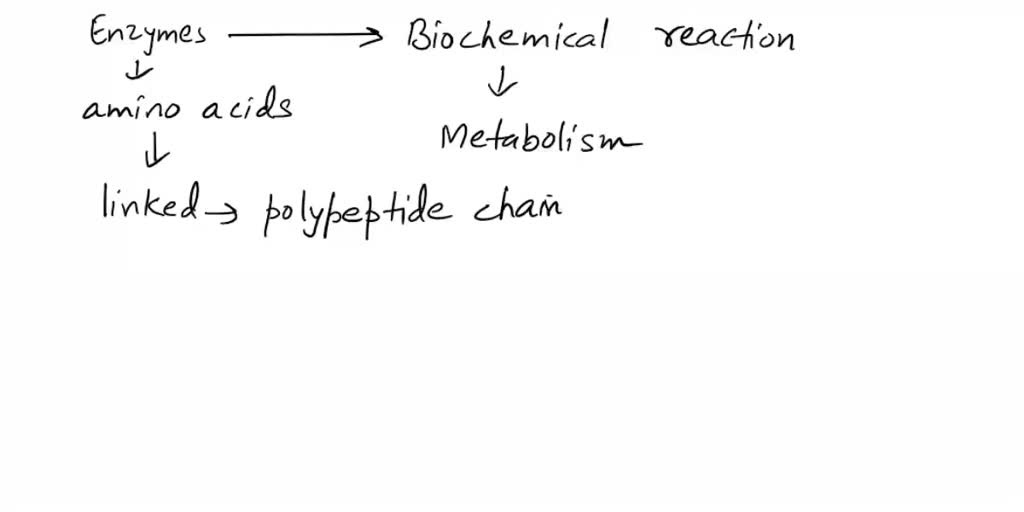 Enzymes → Biochemical reaction
↓ ↓
amino acids
Metabolism
↓
linked → polypeptide chain